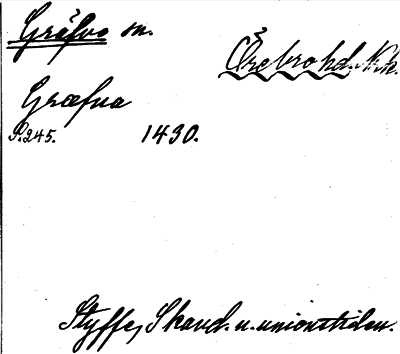 Gräfve sn.
Örebro hd. Nrk.
Græfua
S. 245. 1430.
Styffe, Skand. u. unionstiden.